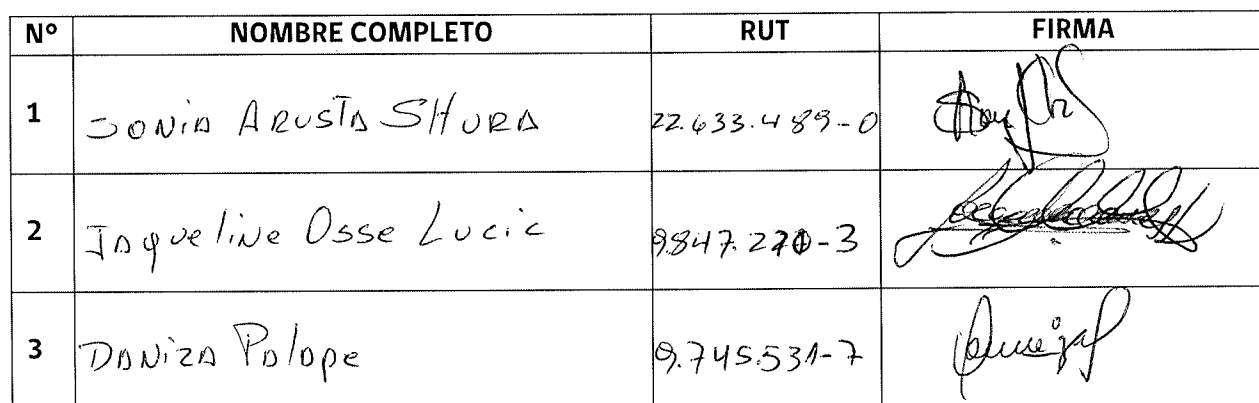 Nº NOMBRE COMPLETO RUT FIRMA
1 SONIA ARUSTA SHURA 22.633.489-0
2 Jaqueline Osse Lucic 9.847.270-3
3 DANIZA Palape 9.745.531-7